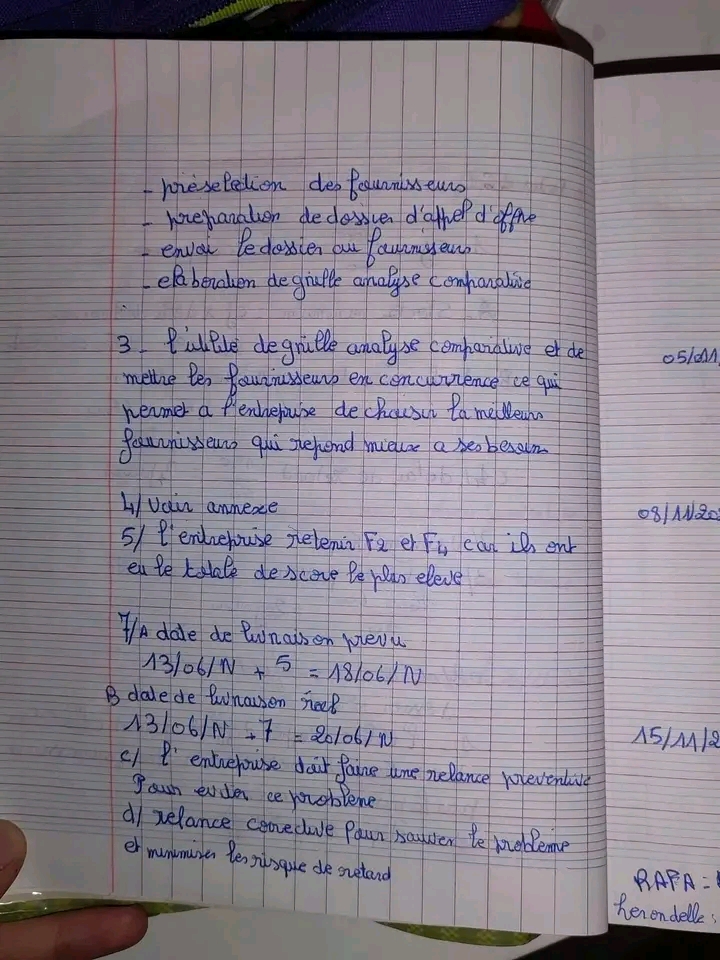 - préseletion des fournisseurs
- preparation de dossier d'appel d'offre
- envoi le dossier au fournisseurs
- elaboration de grille analyse comparative
3 - l'utilité de grille analyse comparative et de
mettre les fournisseurs en concurrence ce qui
permet a l'entreprise de choisir la meilleurs
fournisseurs qui repond mieux a ses besoins
4/ voir annexe
5/ l'entreprise retenir F2 et F4 car ils ont
eu le totale de score le plus eleve
7/A date de livraison prevu
13/06/N + 5 = 18/06/N
B date de livraison réel
13/06/N + 7 = 20/06/N
c/ l'entreprise doit faire une relance preventive
Pour eviter ce probleme
d/ relance corrective Pour sauver le probleme
et minimiser les risque de retard
05/11/
08/11/20
15/11/2
RAFA =
herondelle :